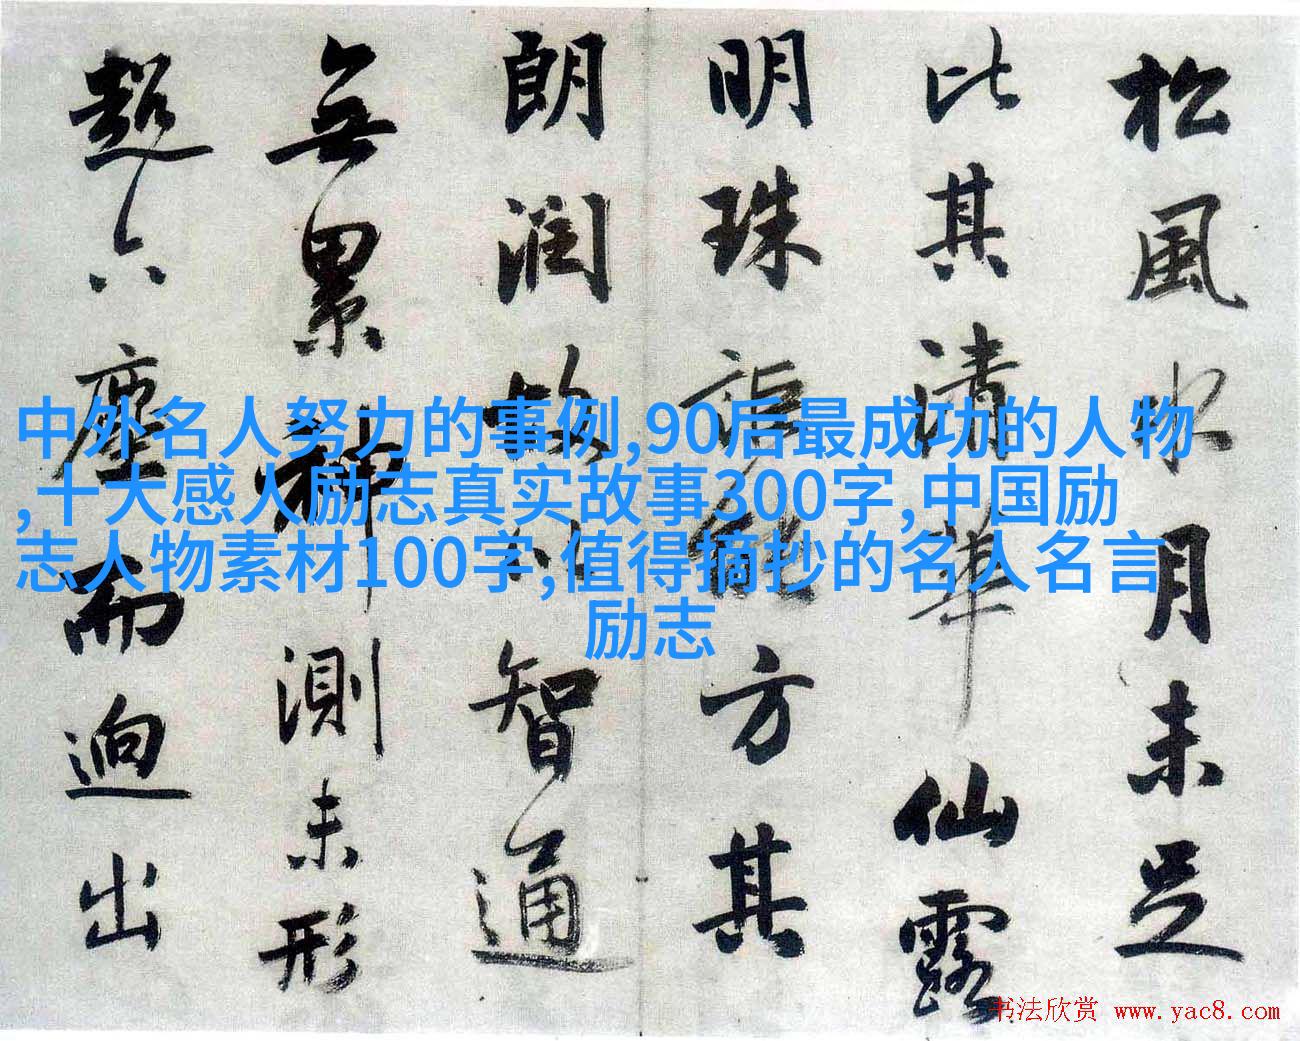 松風水月未足
比其清華仙露
明珠詎能方其
朗潤故以智通
無累神測未形
超六塵而迥出
中外名人努力的事例,90后最成功的人物
,十大感人励志真实故事300字,中国励
志人物素材100字,值得摘抄的名人名言
励志
书法欣赏 www.yac8.com